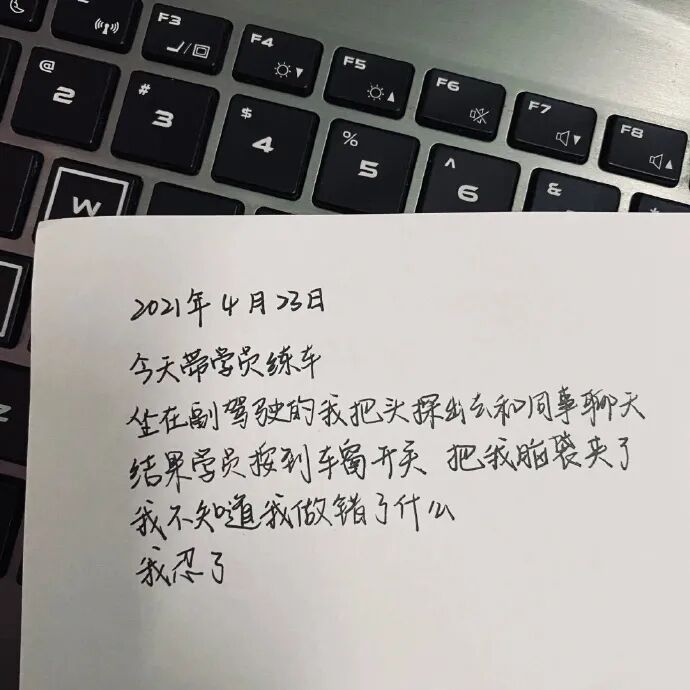 F3
F4
F5
F6
F7
F8
@
2
#
3
$
4
%
5
^
6
&
W
Z
2021年4月23日
今天带学员练车
坐在副驾驶的我把头探出去和同事聊天
结果学员按到车窗开关 把我脑袋夹了
我不知道我做错了什么
我忍了